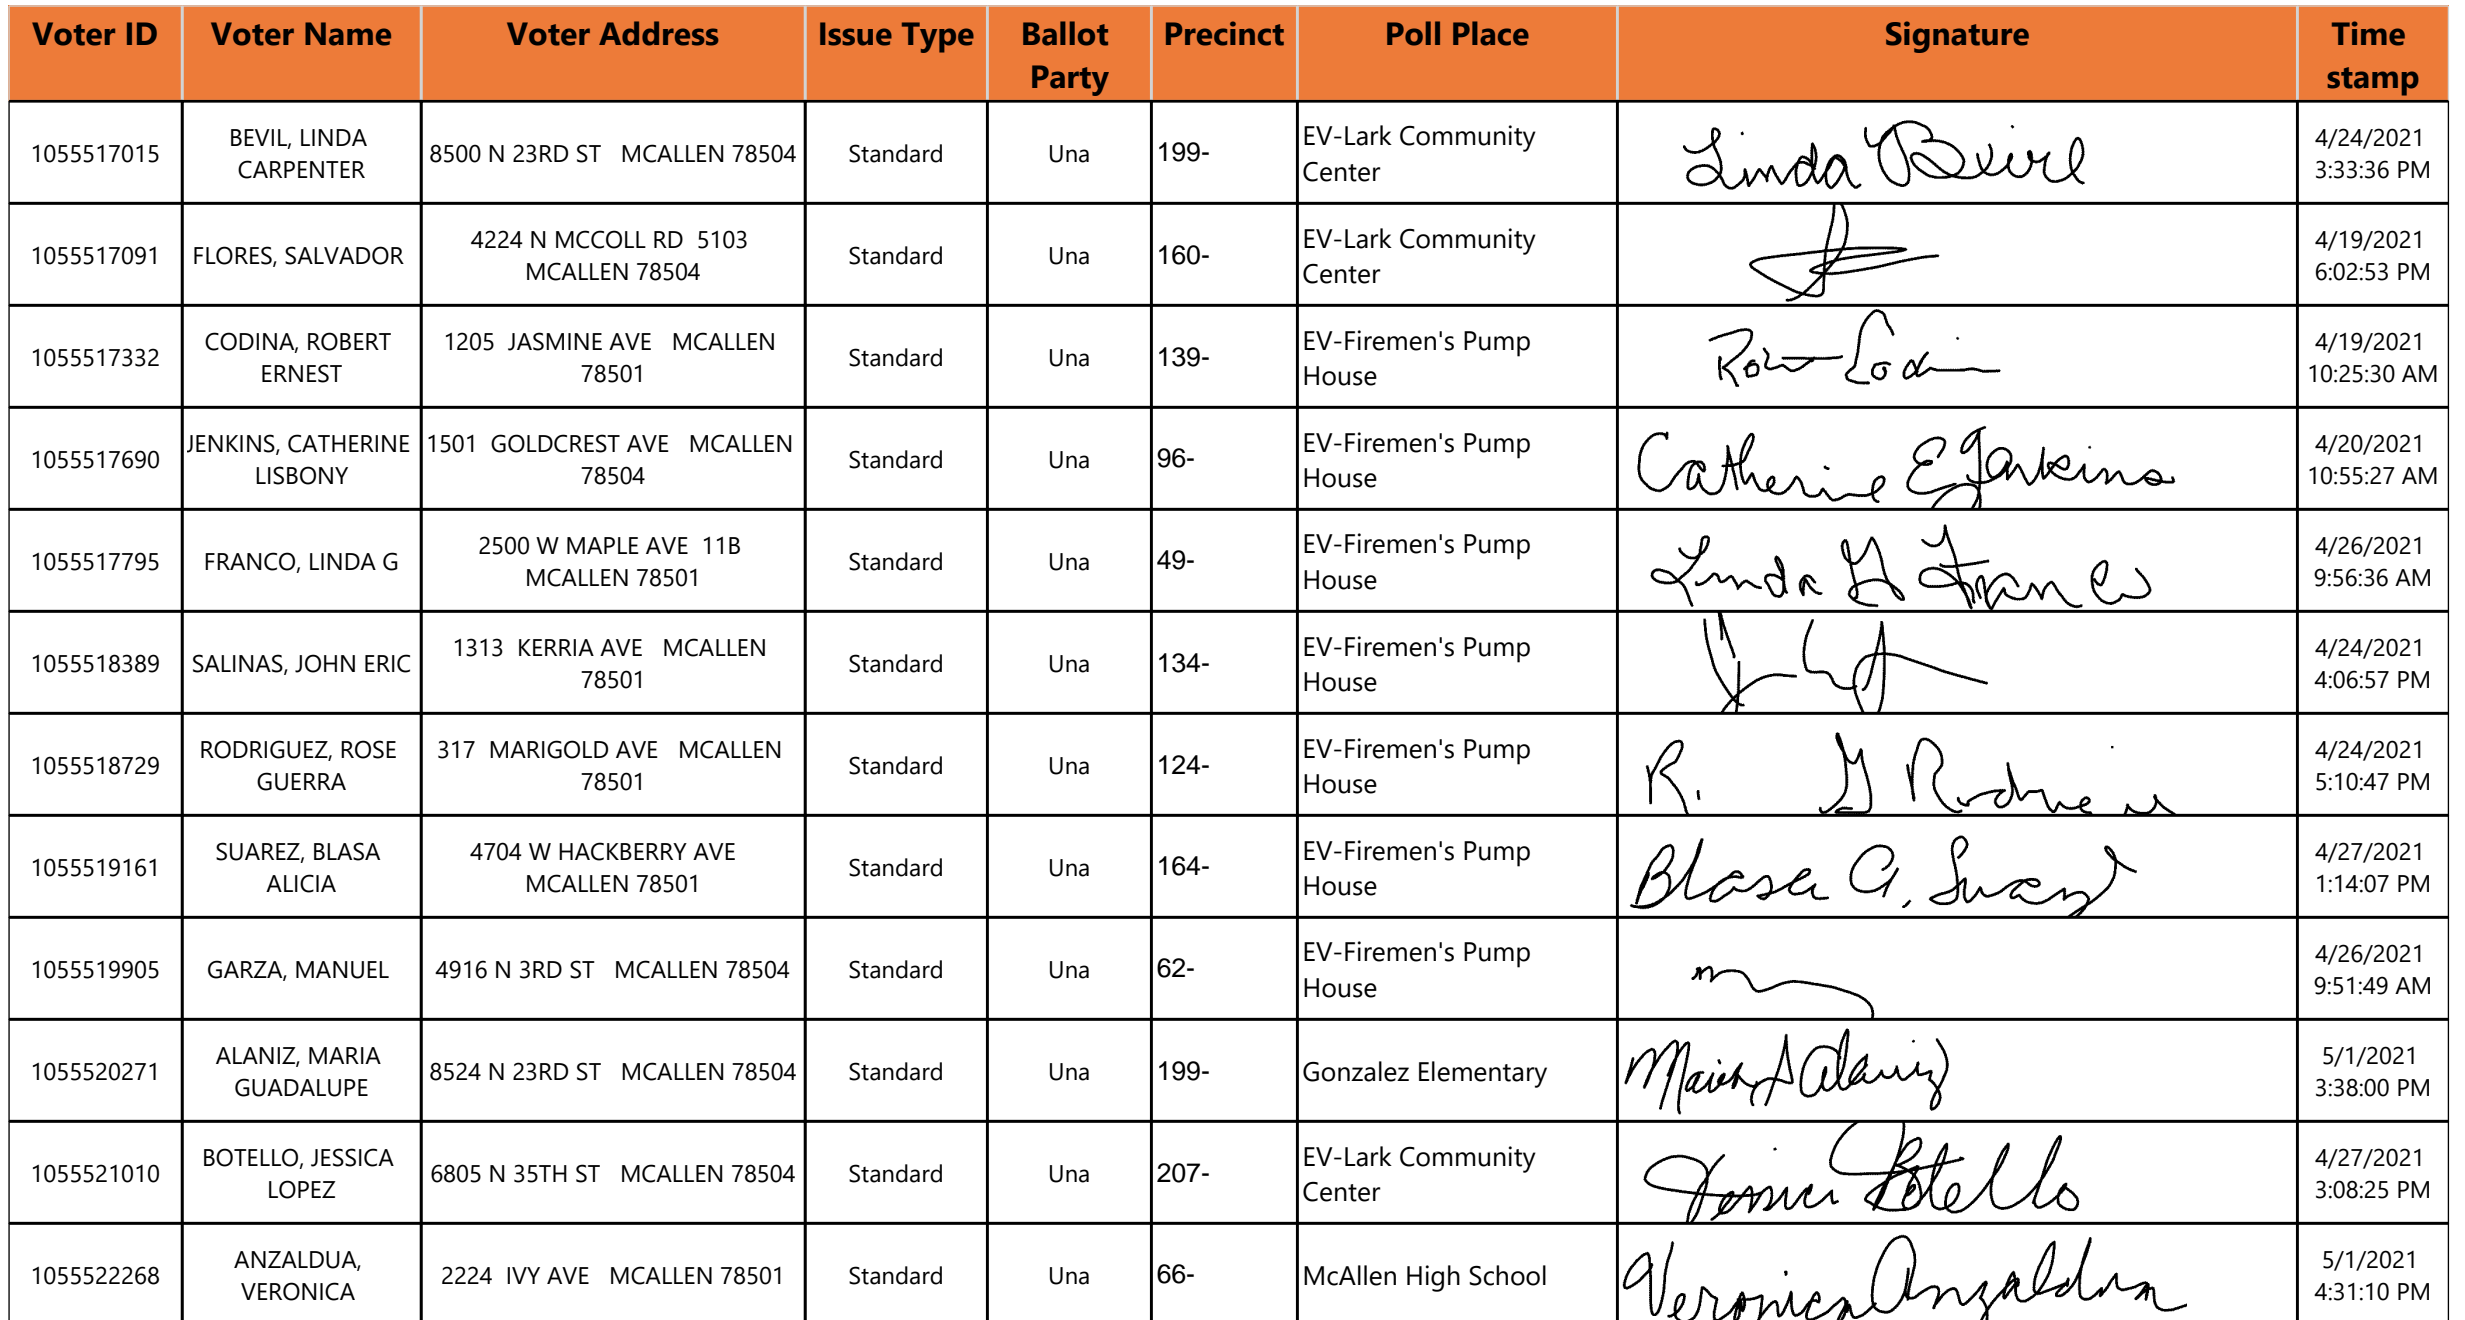 Voter ID Voter Name Voter Address Issue Type Ballot Party Precinct Poll Place Signature Time stamp
1055517015 BEVIL, LINDA CARPENTER 8500 N 23RD ST MCALLEN 78504 Standard Una 199- EV-Lark Community Center Linda Bevil 4/24/2021 3:33:36 PM
1055517091 FLORES, SALVADOR 4224 N MCCOLL RD 5103 MCALLEN 78504 Standard Una 160- EV-Lark Community Center 4/19/2021 6:02:53 PM
1055517332 CODINA, ROBERT ERNEST 1205 JASMINE AVE MCALLEN 78501 Standard Una 139- EV-Firemen's Pump House 4/19/2021 10:25:30 AM
1055517690 JENKINS, CATHERINE LISBONY 1501 GOLDCREST AVE MCALLEN 78504 Standard Una 96- EV-Firemen's Pump House Catherine E Jenkins 4/20/2021 10:55:27 AM
1055517795 FRANCO, LINDA G 2500 W MAPLE AVE 11B MCALLEN 78501 Standard Una 49- EV-Firemen's Pump House Linda G Franco 4/26/2021 9:56:36 AM
1055518389 SALINAS, JOHN ERIC 1313 KERRIA AVE MCALLEN 78501 Standard Una 134- EV-Firemen's Pump House 4/24/2021 4:06:57 PM
1055518729 RODRIGUEZ, ROSE GUERRA 317 MARIGOLD AVE MCALLEN 78501 Standard Una 124- EV-Firemen's Pump House R. G 4/24/2021 5:10:47 PM
1055519161 SUAREZ, BLASA ALICIA 4704 W HACKBERRY AVE MCALLEN 78501 Standard Una 164- EV-Firemen's Pump House Blasa A. Suarez 4/27/2021 1:14:07 PM
1055519905 GARZA, MANUEL 4916 N 3RD ST MCALLEN 78504 Standard Una 62- EV-Firemen's Pump House 4/26/2021 9:51:49 AM
1055520271 ALANIZ, MARIA GUADALUPE 8524 N 23RD ST MCALLEN 78504 Standard Una 199- Gonzalez Elementary Maria Alaniz 5/1/2021 3:38:00 PM
1055521010 BOTELLO, JESSICA LOPEZ 6805 N 35TH ST MCALLEN 78504 Standard Una 207- EV-Lark Community Center Jessica Botello 4/27/2021 3:08:25 PM
1055522268 ANZALDUA, VERONICA 2224 IVY AVE MCALLEN 78501 Standard Una 66- McAllen High School Veronica Anzaldua 5/1/2021 4:31:10 PM